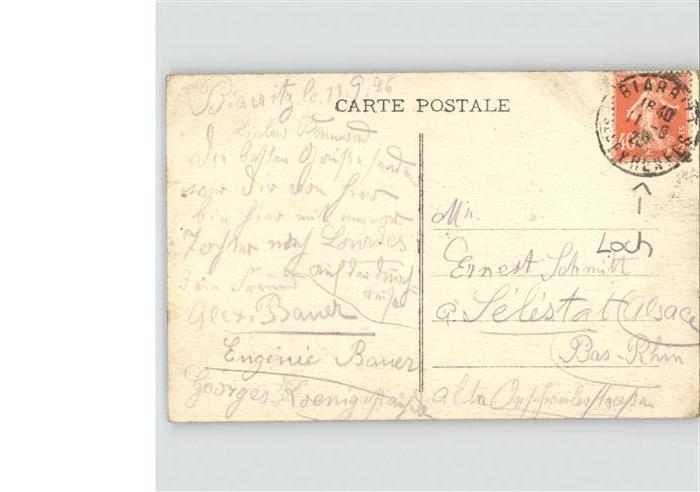 Biarritz le 11.9.26
CARTE POSTALE
BIARRITZ
18 40
11 - 9
26
PYRENEES
40
Lieber Kamerad
Die besten Grüße sende
Dir von hier
bin hier mit meiner
Tochter nach Lourdes
auf der Durch
reise
dein Freund
Alex. Bauer
Eugénie Bauer
Georges Koenig
Mr.
Loch
Ernest Schmitt
à Séléstat Alsace
Bas-Rhin
alte